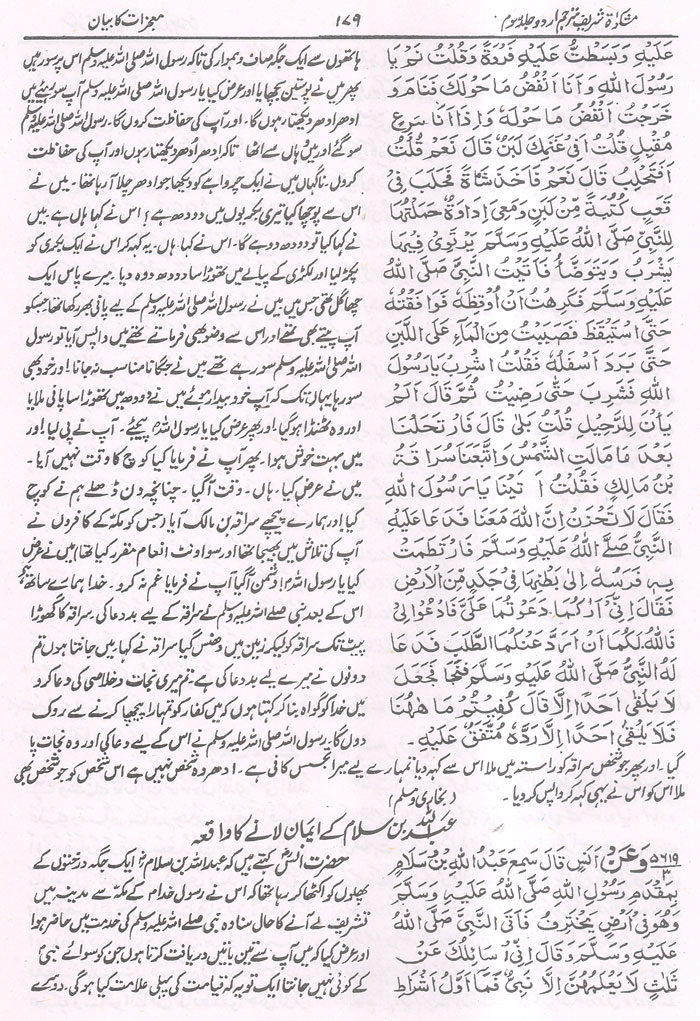 مشکوٰۃ شریف مترجم اردو جلد سوم
۱۷۹
معجزات کا بیان
عَلَيْهِ وَبَسَطْتُ عَلَيْهِ فَرْوَةً وَقُلْتُ نَمْ يَا
رَسُوْلَ اللهِ وَاَنَا اَنْفُضُ مَا حَوْلَكَ فَنَامَ وَ
خَرَجْتُ اَنْفُضُ مَا حَوْلَهٗ وَاِذَا اَنَا بِرَاعٍ
مُقْبِلٍ قُلْتُ اَفِيْ غَنَمِكَ لَبَنٌ قَالَ نَعَمْ قُلْتُ
اَفَتَحْلِبُ قَالَ نَعَمْ فَاَخَذَ شَاةً فَحَلَبَ فِيْ
قَعْبٍ كُثْبَةً مِّنْ لَبَنٍ وَمَعِيَ اِدَاوَةٌ حَمَلْتُهَا
لِلنَّبِيِّ صَلَّى اللهُ عَلَيْهِ وَسَلَّمَ يَرْتَوِيْ فِيْهَا
يَشْرَبُ وَيَتَوَضَّأُ فَاَتَيْتُ النَّبِيَّ صَلَّى اللهُ
عَلَيْهِ وَسَلَّمَ فَكَرِهْتُ اَنْ اُوْقِظَهٗ فَوَافَقْتُهٗ
حَتَّى اسْتَيْقَظَ فَصَبَبْتُ مِنَ الْمَآءِ عَلَى اللَّبَنِ
حَتّٰى بَرَدَ اَسْفَلُهٗ فَقُلْتُ اشْرَبْ يَا رَسُوْلَ
اللهِ فَشَرِبَ حَتّٰى رَضِيْتُ ثُمَّ قَالَ اَلَمْ
يَأْنِ لِلرَّحِيْلِ قُلْتُ بَلٰى قَالَ فَارْتَحَلْنَا
بَعْدَ مَا مَالَتِ الشَّمْسُ وَاتَّبَعَنَا سُرَاقَةُ
بْنُ مَالِكٍ فَقُلْتُ اُتِيْنَا يَا رَسُوْلَ اللهِ
فَقَالَ لَا تَحْزَنْ اِنَّ اللهَ مَعَنَا فَدَعَا عَلَيْهِ
النَّبِيُّ صَلَّى اللهُ عَلَيْهِ وَسَلَّمَ فَارْتَطَمَتْ
بِهٖ فَرَسُهٗ اِلٰى بَطْنِهَا فِيْ جَلَدٍ مِّنَ الْاَرْضِ
فَقَالَ اِنِّيْ اَرَاكُمَا دَعَوْتُمَا عَلَيَّ فَادْعُوَا لِيْ
فَاللهُ لَكُمَا اَنْ اَرُدَّ عَنْكُمَا الطَّلَبَ فَدَعَا
لَهُ النَّبِيُّ صَلَّى اللهُ عَلَيْهِ وَسَلَّمَ فَنَجَا فَجَعَلَ
لَا يَلْقٰى اَحَدًا اِلَّا قَالَ كُفِيْتُمْ مَا هٰهُنَا
فَلَا يَلْقٰى اَحَدًا اِلَّا رَدَّهٗ مُتَّفَقٌ عَلَيْهِ۔
ہاتھوں سے ایک جگہ صاف و ہموار کی تاکہ رسول اللہ صلی اللہ علیہ وسلم اس پر سو رہیں
پھر میں نے پوستین بچھایا اور عرض کیا یا رسول اللہ صلی اللہ علیہ وسلم آپ سو رہیے میں
ادھر ادھر دیکھتا رہوں گا۔ اور آپ کی حفاظت کروں گا۔ رسول اللہ صلی اللہ علیہ وسلم
سو گئے اور میں وہاں سے اٹھا تاکہ ادھر اُدھر دیکھتا رہوں اور آپ کی حفاظت
کروں۔ ناگہاں میں نے ایک چرواہے کو دیکھا جو ادھر چلا آ رہا تھا۔ میں نے
اس سے پوچھا کیا تیری بکریوں میں دودھ ہے؟ اس نے کہا ہاں ہے۔ میں
نے کہا کیا تو دودھ دوہے گا۔ اس نے کہا۔ ہاں۔ یہ کہہ کر اس نے ایک بکری کو
پکڑ لیا اور لکڑی کے پیالے میں تھوڑا سا دودھ دوہ دیا۔ میرے پاس ایک
چھاگل تھی جس میں میں نے رسول اللہ صلی اللہ علیہ وسلم کے لیے پانی بھر رکھا تھا جس کو
آپ پیتے بھی تھے اور اس سے وضو بھی فرماتے تھے میں واپس آیا تو رسول
اللہ صلی اللہ علیہ وسلم سو رہے تھے میں نے جگانا مناسب نہ جانا! اور خود بھی
سو رہا یہاں تک کہ آپ خود بیدار ہوئے میں نے دودھ میں تھوڑا سا پانی ملایا
اور وہ ٹھنڈا ہو گیا۔ اور پھر عرض کیا یا رسول اللہ! پیجئے۔ آپ نے پی لیا! اور
میں بہت خوش ہوا۔ پھر آپ نے فرمایا کیا کوچ کا وقت نہیں آیا۔
میں نے عرض کیا۔ ہاں۔ وقت آ گیا۔ چنانچہ دن ڈھلے ہم نے کوچ
کیا! اور ہمارے پیچھے سراقہ بن مالک آیا (جس کو مکہ کے کافروں نے
آپ کی تلاش میں بھیجا تھا اور سو اونٹ انعام مقرر کیا تھا) میں نے عرض
کیا یا رسول اللہ! دشمن آ گیا آپ نے فرمایا غم نہ کرو۔ خدا ہمارے ساتھ ہے
اس کے بعد نبی صلے اللہ علیہ وسلم نے سراقہ کے لیے بددعا کی۔ سراقہ کا گھوڑا
پیٹ تک سراقہ کو لیکر زمین میں دھنس گیا سراقہ نے کہا میں جانتا ہوں تم
دونوں نے میرے لیے بددعا کی ہے۔ تم میری نجات و خلاصی کی دعا کرو
میں خدا کو گواہ بنا کر کہتا ہوں کہ میں کفار کو تمہارا پیچھا کرنے سے روک
دوں گا۔ رسول اللہ صلی اللہ علیہ وسلم نے اس کے لیے دعا کی اور وہ نجات پا
گیا۔ اور پھر جو شخص سراقہ کو راستہ میں ملا اس سے کہہ دیا تمہارے لیے میرا تجسس کافی ہے۔ ادھر وہ شخص نہیں ہے اس شخص کو جو شخص بھی
ملا اس کو اس نے یہی کہہ کر واپس کر دیا۔ (بخاری و مسلم)
عبداللہ بن سلام کے ایمان لانے کا واقعہ
۵۶۱۹/۳ وَعَنْ اَنَسٍ قَالَ سَمِعَ عَبْدُ اللهِ بْنُ سَلَامٍ
بِمَقْدَمِ رَسُوْلِ اللهِ صَلَّى اللهُ عَلَيْهِ وَسَلَّمَ
وَهُوَ فِيْ اَرْضٍ يَخْتَرِفُ فَاَتَى النَّبِيَّ صَلَّى اللهُ
عَلَيْهِ وَسَلَّمَ وَقَالَ اِنِّيْ سَائِلُكَ عَنْ
ثَلٰثٍ لَا يَعْلَمُهُنَّ اِلَّا نَبِيٌّ فَمَا اَوَّلُ اَشْرَاطِ
حضرت انسؓ کہتے ہیں کہ عبداللہ بن سلامؓ ایک جگہ درختوں کے
پھلوں کو اکٹھا کر رہا تھا کہ اس نے رسول خدا کے مکہ سے مدینہ میں
تشریف لے آنے کا حال سنا وہ نبی صلے اللہ علیہ وسلم کی خدمت میں حاضر ہوا
اور عرض کیا کہ میں آپ سے تین باتیں دریافت کرتا ہوں جن کو سوائے نبی
کے کوئی نہیں جانتا ایک تو یہ کہ قیامت کی پہلی علامت کیا ہو گی۔ دوسرے